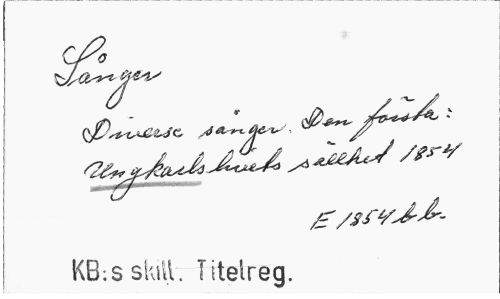 Sånger
Diverse sånger. Den första:
Ungkarlslivets sällhet 1854
E 1854 bb.
KB:s skill. Titelreg.